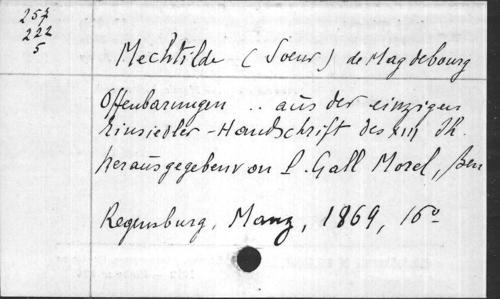 257
222
5
Mechtilde (Soeur) de Magdebourg
Offenbarungen .. aus der einzigen
Einsiedler-Handschrift des XIII Jh.
herausgegeben von P. Gall Morel,
Regensburg, Manz, 1869, 16°